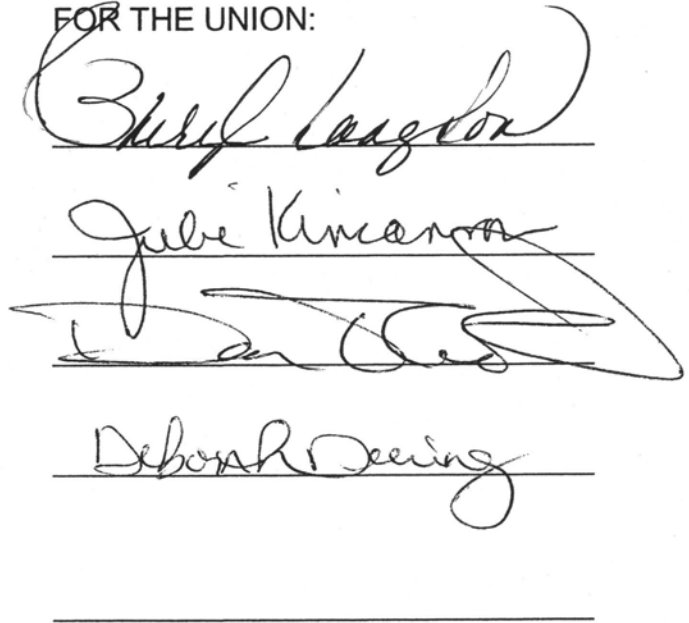 FOR THE UNION:
Beryl Langdon
Julie Kincannon
Dan
Deborah Deering